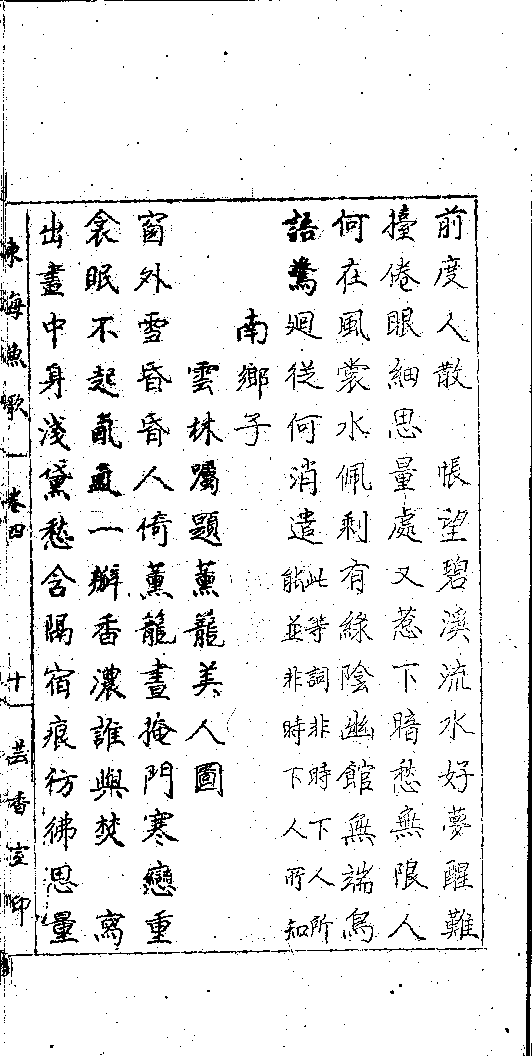 前度人散　帳望碧溪流水好夢醒難
擡倦眼細思量處又惹下暗愁無限人
何在風裳水佩剩有綠陰幽館無端鳥
語驚廻從何消遣此等詞非時下人所
能並非時下人所知
南鄉子
雲林囑題薰籠美人圖
窗外雪昏昏人倚薰籠晝掩門寒戀重
衾眠不起氤氳一瓣香濃誰與焚　寫
出畫中身淺黛愁含隔宿痕彷彿思量
東海漁歌　卷四　十　芸香室印